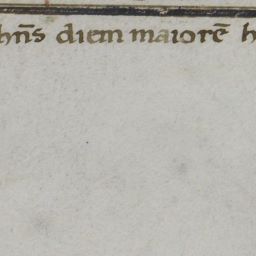 hn̄s diem maiorē h